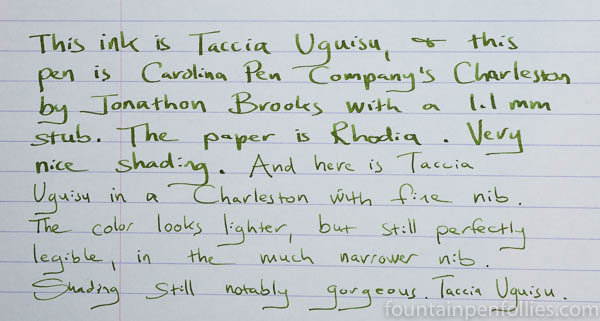 This ink is Taccia Uguisu, & this
pen is Carolina Pen Company's Charleston
by Jonathon Brooks with a 1.1 mm
stub. The paper is Rhodia. Very
nice shading. And here is Taccia
Uguisu in a Charleston with fine nib.
The color looks lighter, but still perfectly
legible, in the much narrower nib.
Shading still notably gorgeous. Taccia Uguisu.
fountainpenfollies.com